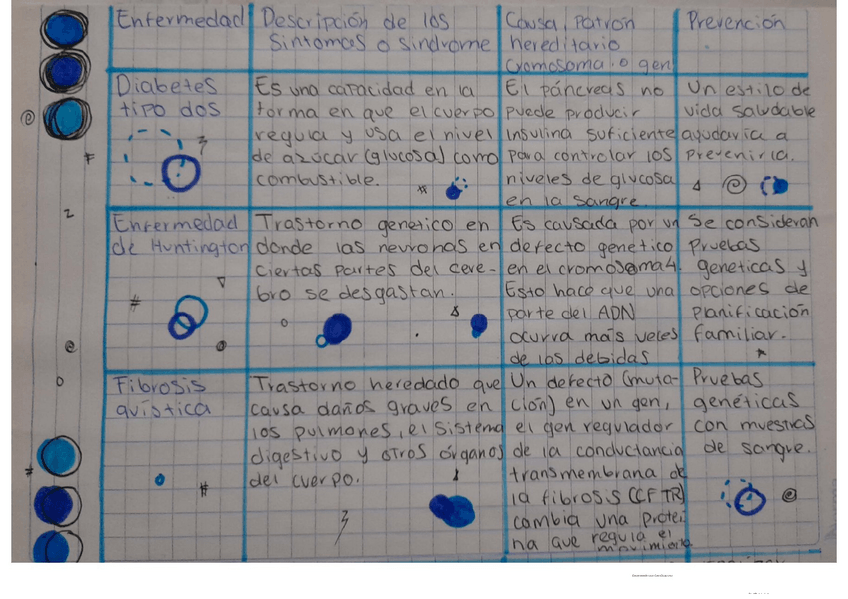 Enfermedad
Descripción de los
Sintomas o sindrome
Causa, Patrón
hereditario
cromosoma o gen
Prevención
Diabetes
tipo dos
Es una capacidad en la
forma en que el cuerpo
regula y usa el nivel
de azúcar (glucosa) como
combustible.
El páncreas no
puede producir
insulina suficiente
para controlar los
niveles de glucosa
en la sangre.
Un estilo de
vida saludable
ayudaria a
Prevenirla.
Enfermedad
de Huntington
Trastorno genetico en
donde las neuronas en
ciertas partes del cere-
bro se desgastan.
Es causada por un
defecto genetico
en el cromosoma 4.
Esto hace que una
parte del ADN
ocurra más veces
de las debidas
Se consideran
Pruebas
geneticas y
opciones de
Planificación
familiar.
Fibrosis
quística
Trastorno heredado que
causa daños graves en
los pulmones, el sistema
digestivo y otros órganos
del cuerpo.
Un defecto (muta-
ción) en un gen,
el gen regulador
de la conductancia
transmembrana de
la fibrosis (CFTR)
cambia una protei
na que regula el
movimiento
Pruebas
genéticas
con muestras
de sangre.